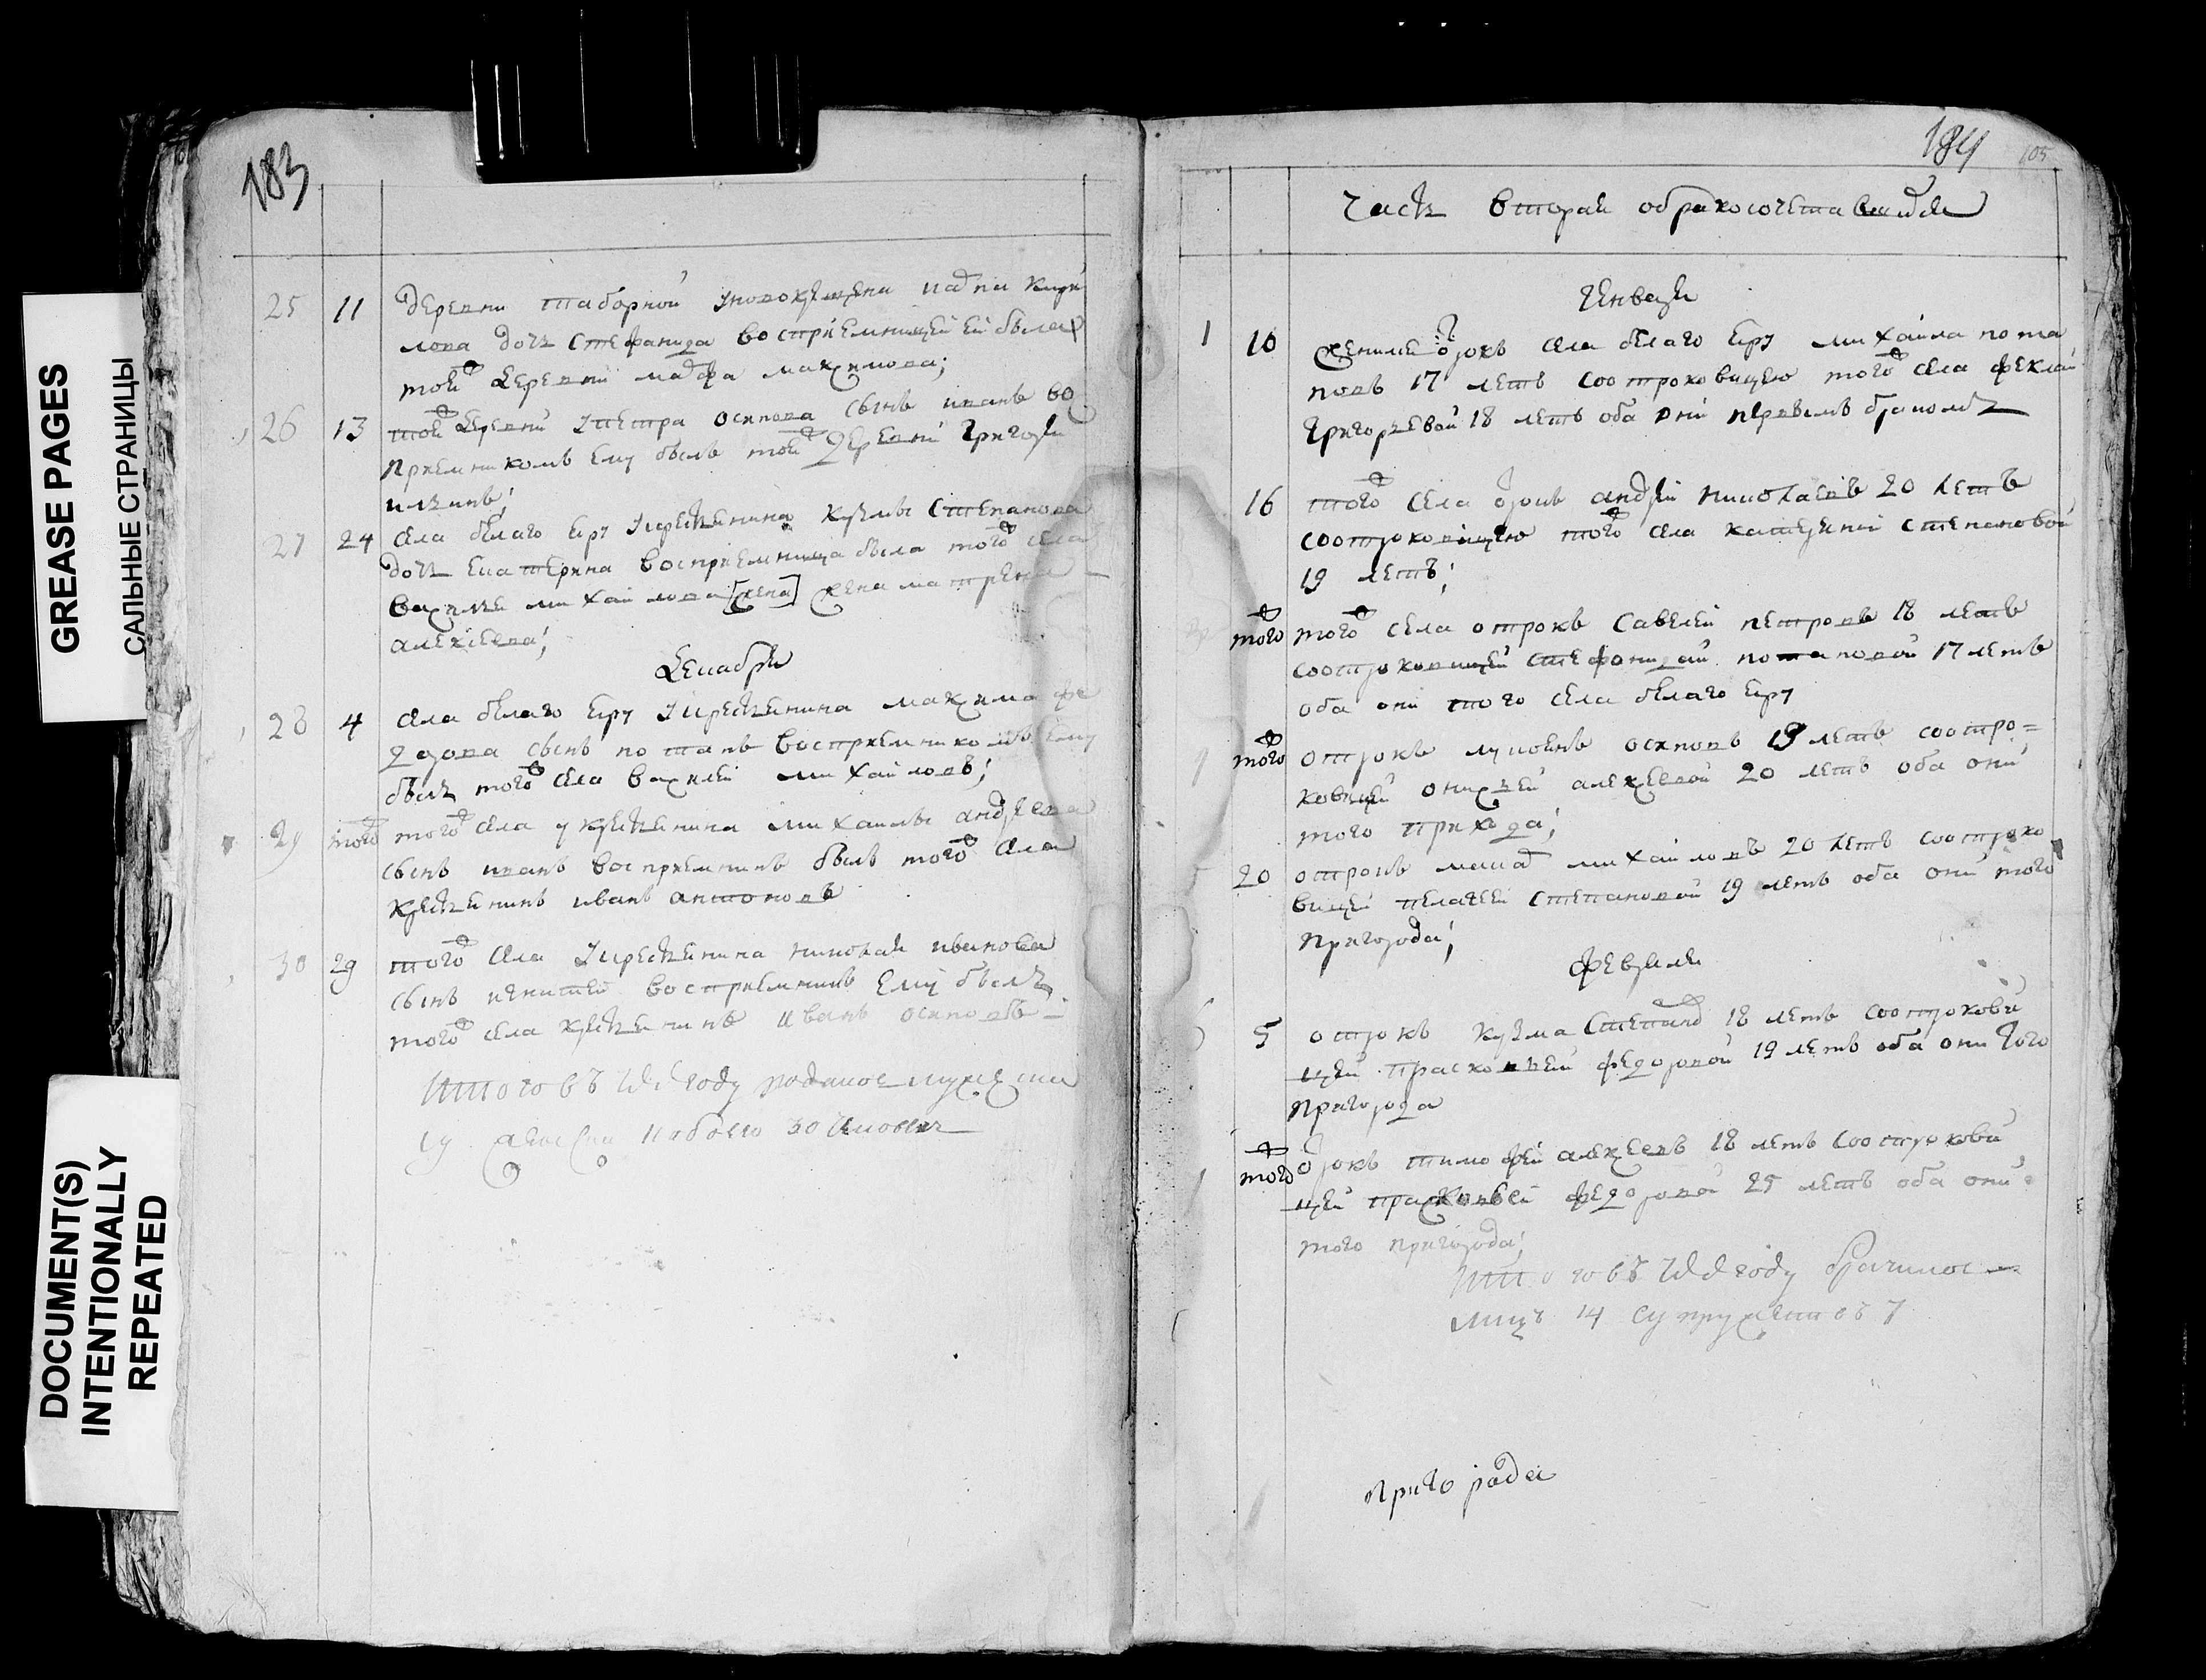 GREASE PAGES
САЛЬНЫЕ СТРАНИЦЫ
DOCUMENT(S)
INTENTIONALLY
REPEATED
183
25 11 деревни таборной уновокрещена
дочь стефанида восприемницей ей была
тойже деревни марфа максимова;
26 13 тойже деревни упетра осипова сынъ иванъ во
приемникомъ ему былъ тойже деревни григорей
27 24 села белаго Еру укрестьянина кузмы степанова
дочь екатерина восприемница была тогоже села
василья михайлова [жена] жена матрена
алексеева;
декабрь
28 4 села белаго Еру укрестьянина максима фе
дорова сынъ потапъ восприемникомъ ему
былъ тогоже села василей михайловъ;
29 тогоже тогоже села укрестьянина михаилы андреева
сынъ иванъ восприемникъ былъ тогоже села
крестьянинъ иванъ антоновъ
30 29 тогоже села укрестьянина николая иванова
сынъ восприемникъ ему былъ
тогоже села крестьянинъ иванъ осиповъ
Итого въ году родилос мужеска
женска обоего 30 человекъ
184
105
Часть вторая обракосочетавшихся
Генварь
1 10 женился отрокъ села белаго Еру михайла пота
повъ 17 летъ соотроковицею тогоже села феклой
григорьевой 18 летъ оба они первымъ бракомъ
16 тогоже села отрокъ андрей николаевъ 20 летъ
соотроковицею тогоже села катериной степановой
19 летъ;
тогоже тогоже села отрокъ савелей петровъ 18 летъ
соотроковицей стефанидай потаповой 17 летъ
оба они того села белаго Еру
тогоже отрокъ осиповъ 19 летъ соотро=
ковицей анисьей алексеевой 20 летъ оба они
того прихода;
20 отрокъ михайловъ 20 летъ соотроко
вицей пелагеей степановой 19 летъ оба они того
пригорода;
февраль
5 отрокъ кузма степановъ 18 летъ соотрокови
цей прасковьей федоровой 19 летъ оба они того
пригорода
тогоже отрокъ тимофей алексеевъ 18 летъ соотрокови
цей прасковьей федоровой 25 летъ оба они
того пригорода;
Итого въ году брачилос
лицъ 14 супружествъ 7
пригорода